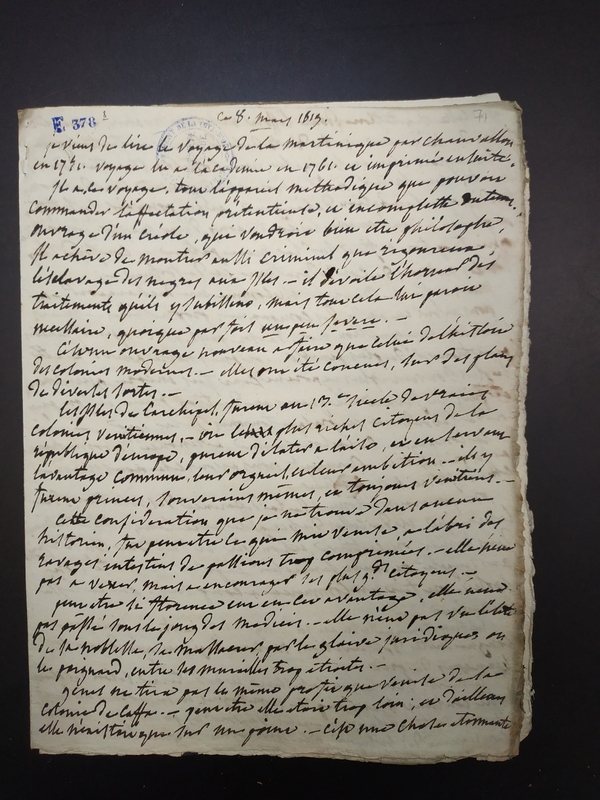 E 378
71
Ce 8. mars 1819.
je viens de lire le voyage de la martinique par chanvallon
en 1751. voyage lu a l'academie en 1761. et imprimé ensuite.
Il a le voyage, tout l'appareil methodique que pouvoit
commander l'affectation prétentieuse, et incomplette
ouvrage d'un créole, qui voudroit bien etre philosophe,
Il achève de montrer aussi criminel que rigoureux,
l'esclavage des negres aux Isles. — il dévoile l'horreur des
traitements qu'ils y subissent, mais tout cela lui paroit
necessaire, quoique par fois un peu severe. —
C'est un ouvrage nouveau a faire que celui de l'histoire
des colonies modernes. — elles ont été conçues, sur des plans
de diverses sortes. —
Les Isles de l'archipel, furent au 13.e siecle de vraies
colonies venitiennes, — où les plus riches citoyens de la
république d'europe, purent dilater a l'aise, et en servant
l'avantage commun, leur orgueil, et leur ambition — ils y
furent princes, souverains memes, et toujours venitiens. —
Cette consideration que je ne trouve dans aucun
historien, fut peut etre ce qui mit venise, a l'abri des
ravages intestins de passions trop comprimées. — elle n'eut
pas a vexer, mais a encourager ses plus gds citoyens. —
peut etre si florence eut eu cet avantage, elle n'eut
pas passé sous le joug des medicis. — elle n'eut pas vu l'élite
de sa noblesse, se massacrer, par le glaive juridique, ou
le poignard, entre ses murailles trop etroites. —
gênes ne tira pas le meme profit que venise de la
colonie de Caffa. — peut etre elle etoit trop loin; et d'ailleurs
elle n'existoit que sur un point. — C'est une chose etonnante